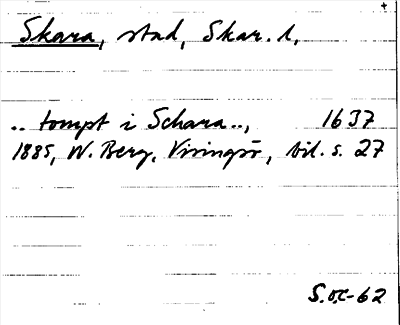 Skara, stad, Skar. l.
.. tompt i Schara .., 1637
1885, W. Berg, Visingsö, bil. s. 27
S.OC-62